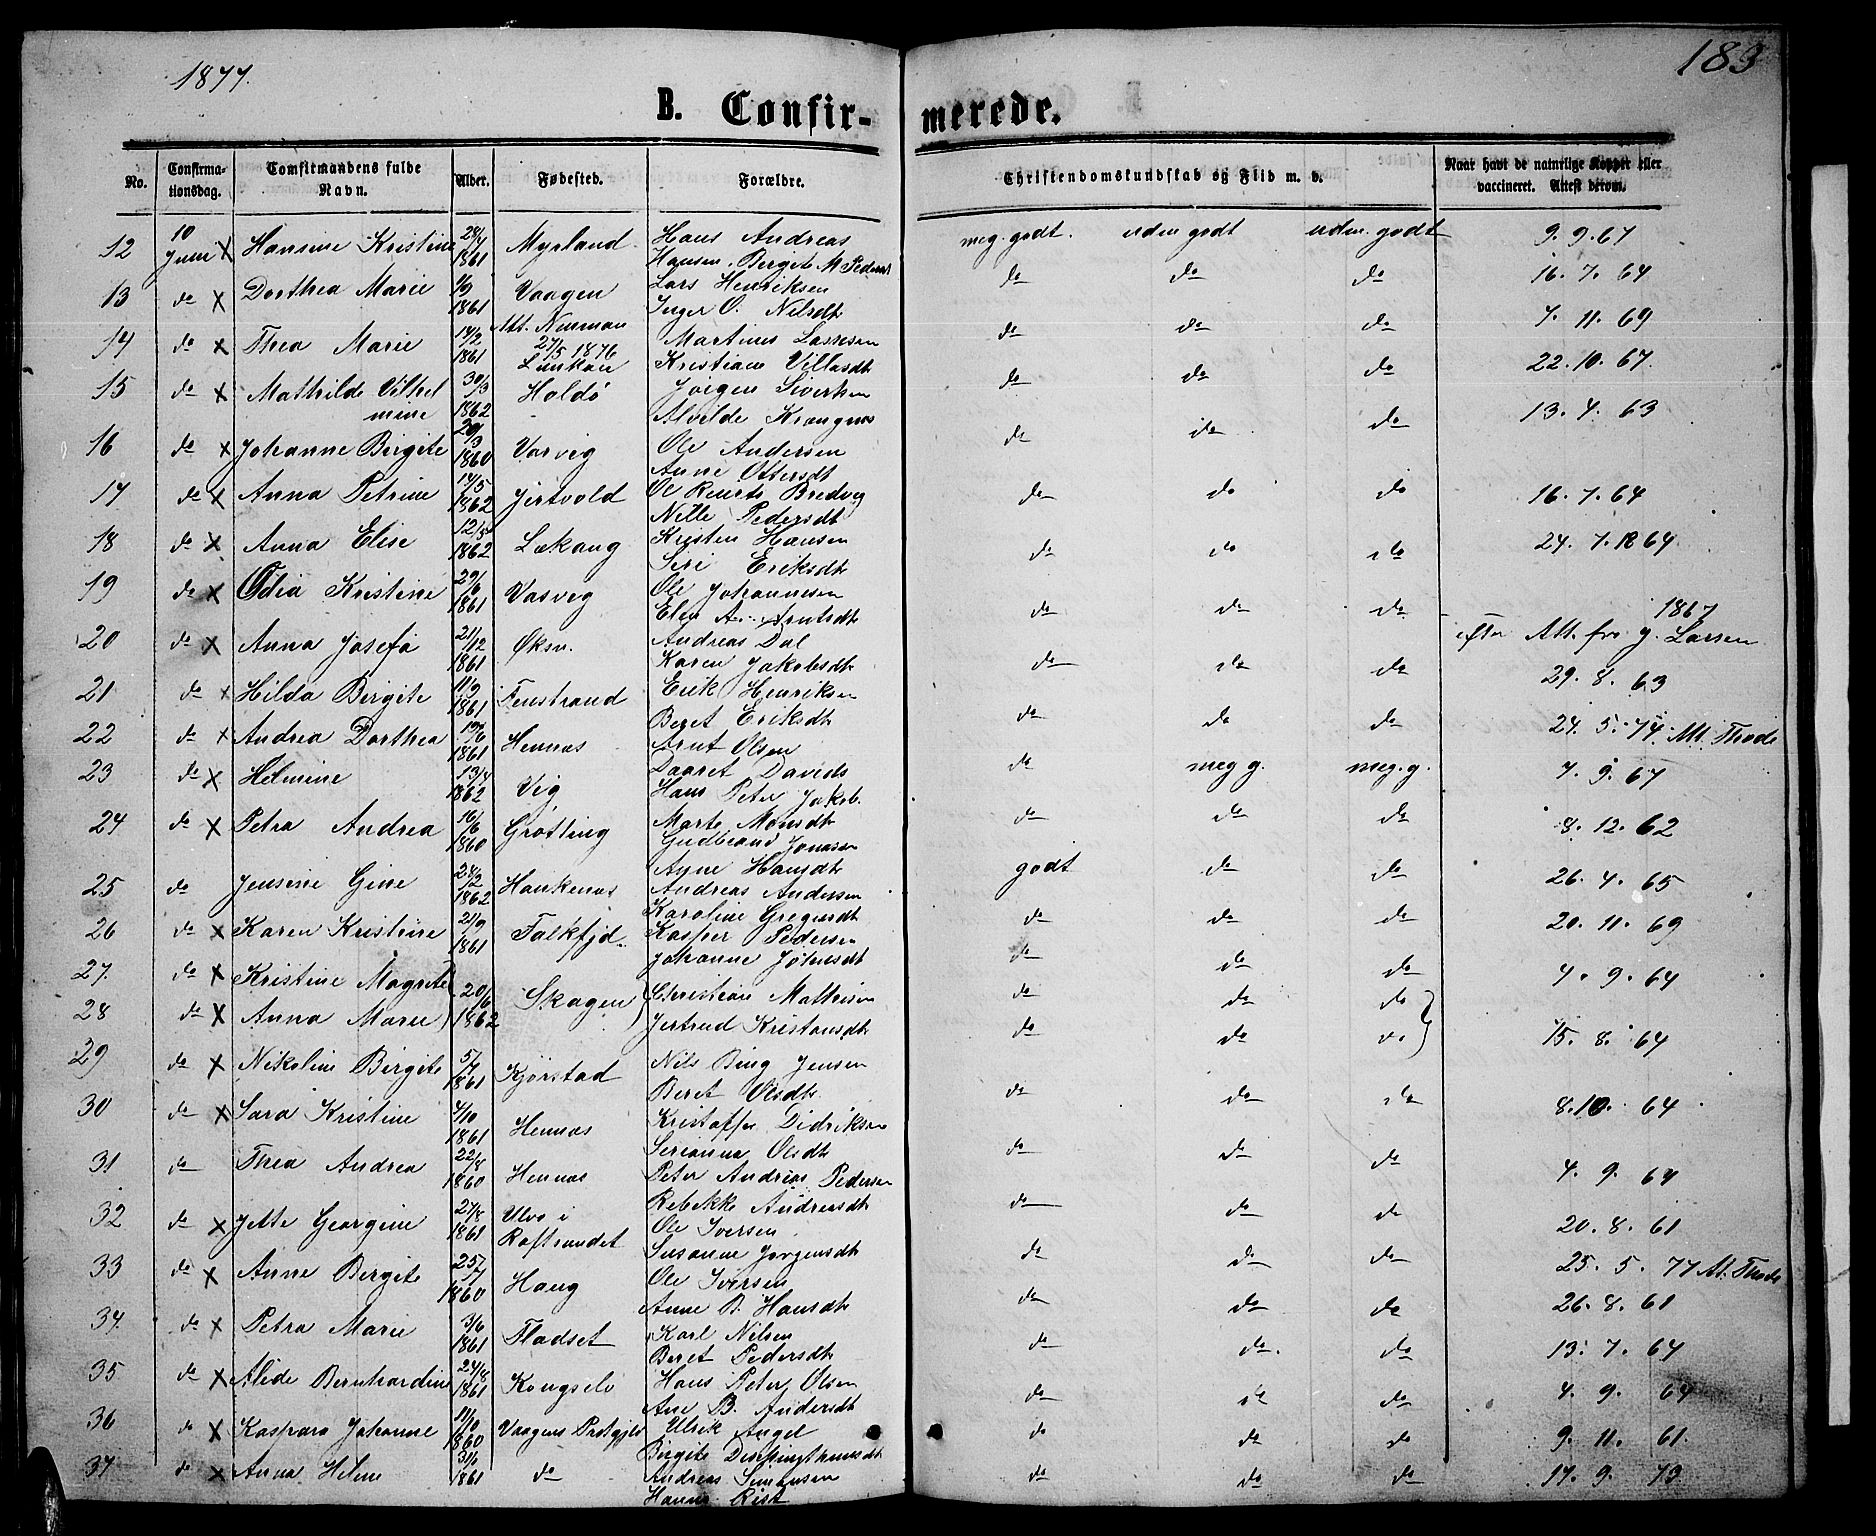 1877.
183
B. Confir-
merede.
No.
Confirma-
tionsdag.
Comfirmandens fulde
Navn.
Alder.
Fødested.
Forældre.
Christendomskundskab og Flid m. v.
Naar havt de naturlige Kopper eller
vaccineret. Attest derom.
12 10 Juni x Hansine Kristine 1861 Myrland Hans Andreas Hansen. Bergite M Peders meg. godt. uden godt udm. godt 9. 9. 67
13 do x Dorthea Marie 1861 Vaagen Lars Henriksen Inger O. Nilsdt do do do 16. 7. 64
14 do x Thea Marie 14/2 1861 Att. Neuman 27/5 1876 Martinus Lassesen Kristiane Villasdt do do do 7. 11. 69
15 do x Mathilde Vilhelmine 30/3 1862 Holdø Jørgen Siverts Alvilde do do do 22. 10. 67.
16 do x Johanne Birgite 29/3 1860 Vasvig Ole Andersen Anne Ottersdt do do do 13. 4. 63
17 do x Anna Petrine 14/5 1862 Jertvold Ol Reierts Bredveg Nille Pedersdt do do do 16. 7. 64
18 do x Anna Elise 12/5 1862 Lekang Kristen Hansen Siri Eriksdt do do do 24. 7. 1864
19 do x Odia Kristine 29/6 1861 Vasvig Ole Johannesen Elen A. Arntsdt do do do 1867
20 do x Anna Josefa 21/12 1861 Øksn. Andreas Dal Karen Jakobsdt do do do efter Att. fra J. Larsen
21 do x Hilda Birgite 11/9 1861 Fenstrand Erik Henriksen Beret Eriksdt do do do 29. 8. 63
22 do x Andrea Dorthea 19/6 1861 Hennæs Arnt Olsen Daaret Davids do meg g. meg. g. 24. 5. 74. Att. Thode
23 do x Helmine 13/4 1862 Vig Hans Peter Jakob. Marte Monsdt do do do 7. 9. 67
24 do x Petra Andrea 16/6 1860 Grøtting Gudbrand Jonasen Anne Hansdt godt do do 8. 12. 62
25 do Jensine Gine 28/2 1862 Haukenæs Andreas Andersen Karoline Gregersdt do do do 26. 4. 65
26 do x Karen Kristine 21/9 1861 Falkfjd. Kasper Pedersen Johanne Johnsdt do do do 20. 11. 69
27. do x Kristine Magrete
28 do x Anna Marie 20/6 1862 Skagen Christian Mathisen Jertrud Kristensdt do do do 4. 9. 64
29 do x Nikoline Birgite 5/7 1861 Kjørstad Nils Bing Jensen Beret Olsdt do do do 15. 8. 64
30 do x Sara Kristine 4/10 1861 Hennæs Kristoffer Didriksen Serianna Olsdt do do do 8. 10. 64
31 do Thea Andrea 22/8 1860 Hennæs Peter Andreas Pedersen Rebekke Andreasdt do do do 4. 9. 64
32 do x Jette Georgine 27/8 1861 Ulvø i Raftsundet Ole Iversen Susanne Jørgensdt do do do 20. 8. 61
33 do x Anne Bergite 25/7 1860 Haug Ole Iversen Anne B. Hansdt do do do 25. 5. 77 At. Thode
34. do x Petra Marie 3/6 1861 Fladset Karl Nilsen Beret Pedersdt do do do 26. 8. 61
35 do x Alide Bernhardine 24/8 1861 Kongselv Hans Peter Olsen Ane B. Andersdt do do do 13. 7. 64
36 do x Kaspara Johanne 11/10 1860 Vaagens Præstgjeld Ulrik Angel Birgite do do do 4. 9. 64
9. 11. 61.
37 do x Anna Helene 31/6 1861 do Andreas Simonsen Hanna Rist do do do 17. 9. 73